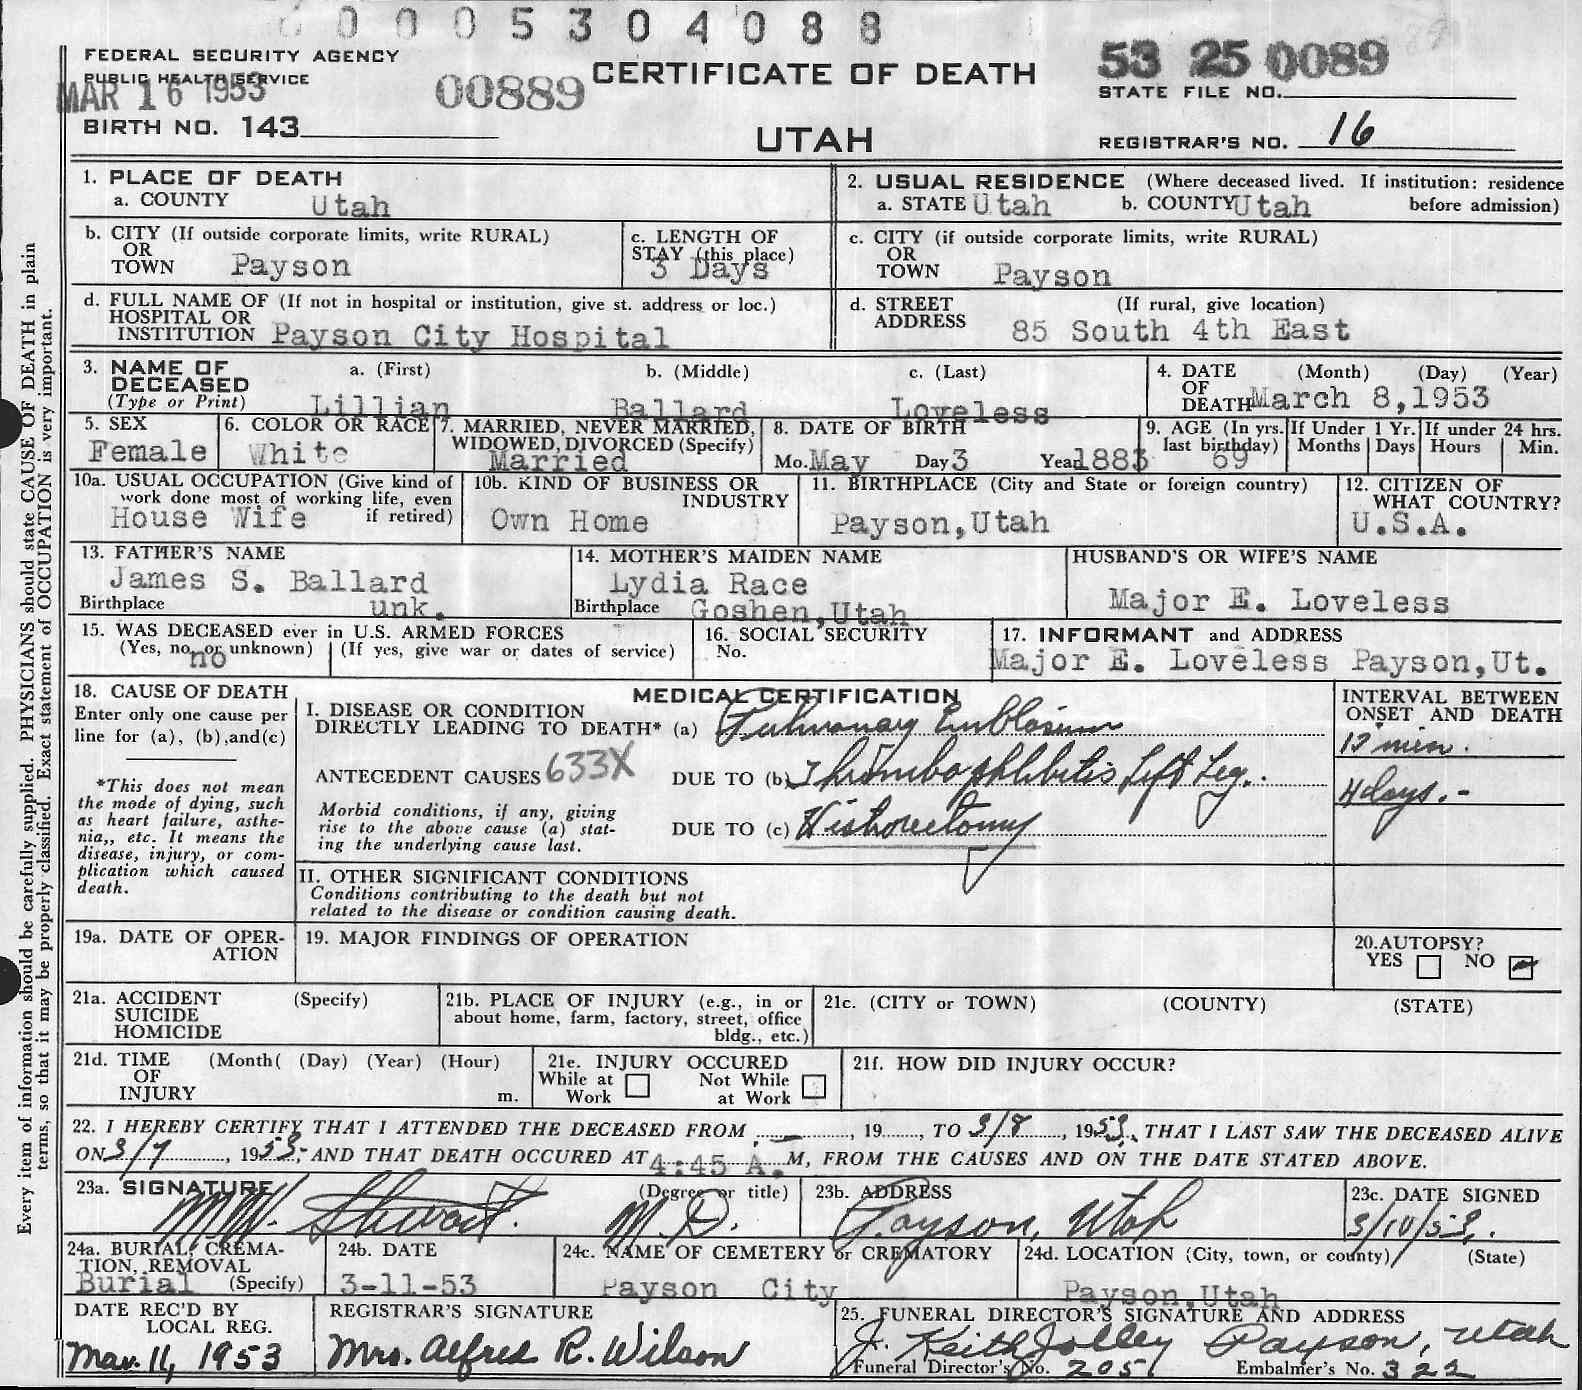 0 0 0 5 3 0 4 0 8 8
FEDERAL SECURITY AGENCY
PUBLIC HEALTH SERVICE
MAR 16 1953
00889
CERTIFICATE OF DEATH
53 25 0089
STATE FILE NO.
BIRTH NO. 143
UTAH
REGISTRAR'S NO. 16
Every item of information should be carefully supplied. PHYSICIANS should state CAUSE OF DEATH in plain
terms, so that it may be properly classified. Exact statement of OCCUPATION is very important.
1. PLACE OF DEATH
a. COUNTY Utah
2. USUAL RESIDENCE (Where deceased lived. If institution: residence
a. STATE Utah b. COUNTY Utah before admission)
b. CITY (If outside corporate limits, write RURAL)
OR
TOWN Payson
c. LENGTH OF
STAY (this place)
3 Days
c. CITY (if outside corporate limits, write RURAL)
OR
TOWN Payson
d. FULL NAME OF (If not in hospital or institution, give st. address or loc.)
HOSPITAL OR
INSTITUTION Payson City Hospital
d. STREET (If rural, give location)
ADDRESS 85 South 4th East
3. NAME OF a. (First) b. (Middle) c. (Last)
DECEASED
(Type or Print) Lillian Ballard Loveless
4. DATE (Month) (Day) (Year)
OF
DEATH March 8,1953
5. SEX
Female
6. COLOR OR RACE
White
7. MARRIED, NEVER MARRIED,
WIDOWED, DIVORCED (Specify)
Married
8. DATE OF BIRTH
Mo. May Day 3 Year 1883
9. AGE (In yrs.
last birthday)
69
If Under 1 Yr.
Months Days
If under 24 hrs.
Hours Min.
10a. USUAL OCCUPATION (Give kind of
work done most of working life, even
House Wife if retired)
10b. KIND OF BUSINESS OR
INDUSTRY
Own Home
11. BIRTHPLACE (City and State or foreign country)
Payson,Utah
12. CITIZEN OF
WHAT COUNTRY?
U.S.A.
13. FATHER'S NAME
James S. Ballard
Birthplace unk.
14. MOTHER'S MAIDEN NAME
Lydia Race
Birthplace Goshen,Utah
HUSBAND'S OR WIFE'S NAME
Major E. Loveless
15. WAS DECEASED ever in U.S. ARMED FORCES
(Yes, no, or unknown) (If yes, give war or dates of service)
no
16. SOCIAL SECURITY
No.
17. INFORMANT and ADDRESS
Major E. Loveless Payson,Ut.
18. CAUSE OF DEATH
Enter only one cause per
line for (a), (b),and(c)
*This does not mean
the mode of dying, such
as heart failure, asthe-
nia,, etc. It means the
disease, injury, or com-
plication which caused
death.
MEDICAL CERTIFICATION
I. DISEASE OR CONDITION
DIRECTLY LEADING TO DEATH* (a) Pulmonary Embolism
ANTECEDENT CAUSES 633X DUE TO (b) Thrombophlebitis Left Leg.
Morbid conditions, if any, giving
rise to the above cause (a) stat-
ing the underlying cause last.
DUE TO (c) Historectomy
INTERVAL BETWEEN
ONSET AND DEATH
min.
4 days. -
II. OTHER SIGNIFICANT CONDITIONS
Conditions contributing to the death but not
related to the disease or condition causing death.
19a. DATE OF OPER-
ATION
19. MAJOR FINDINGS OF OPERATION
20.AUTOPSY?
YES NO
21a. ACCIDENT (Specify)
SUICIDE
HOMICIDE
21b. PLACE OF INJURY (e.g., in or
about home, farm, factory, street, office
bldg., etc.)
21c. (CITY or TOWN) (COUNTY) (STATE)
21d. TIME (Month( (Day) (Year) (Hour)
OF
INJURY m.
21e. INJURY OCCURED
While at Not While
Work at Work
21f. HOW DID INJURY OCCUR?
22. I HEREBY CERTIFY THAT I ATTENDED THE DECEASED FROM —, 19, TO 3/8, 1953, THAT I LAST SAW THE DECEASED ALIVE
ON 3/7, 1953, AND THAT DEATH OCCURED AT 4:45 A. M, FROM THE CAUSES AND ON THE DATE STATED ABOVE.
23a. SIGNATURE (Degree or title)
Stewart. M.D.
23b. ADDRESS
Payson, Utah
23c. DATE SIGNED
3/10/53.
24a. BURIAL, CREMA-
TION, REMOVAL
Burial (Specify)
24b. DATE
3-11-53
24c. NAME OF CEMETERY or CREMATORY
Payson City
24d. LOCATION (City, town, or county) (State)
Payson,Utah
DATE REC'D BY
LOCAL REG.
Mar. 11, 1953
REGISTRAR'S SIGNATURE
Mrs. Alfred R. Wilson
25. FUNERAL DIRECTOR'S SIGNATURE AND ADDRESS
J. Keith Jolley Payson, Utah
Funeral Director's No. 205 Embalmer's No. 322